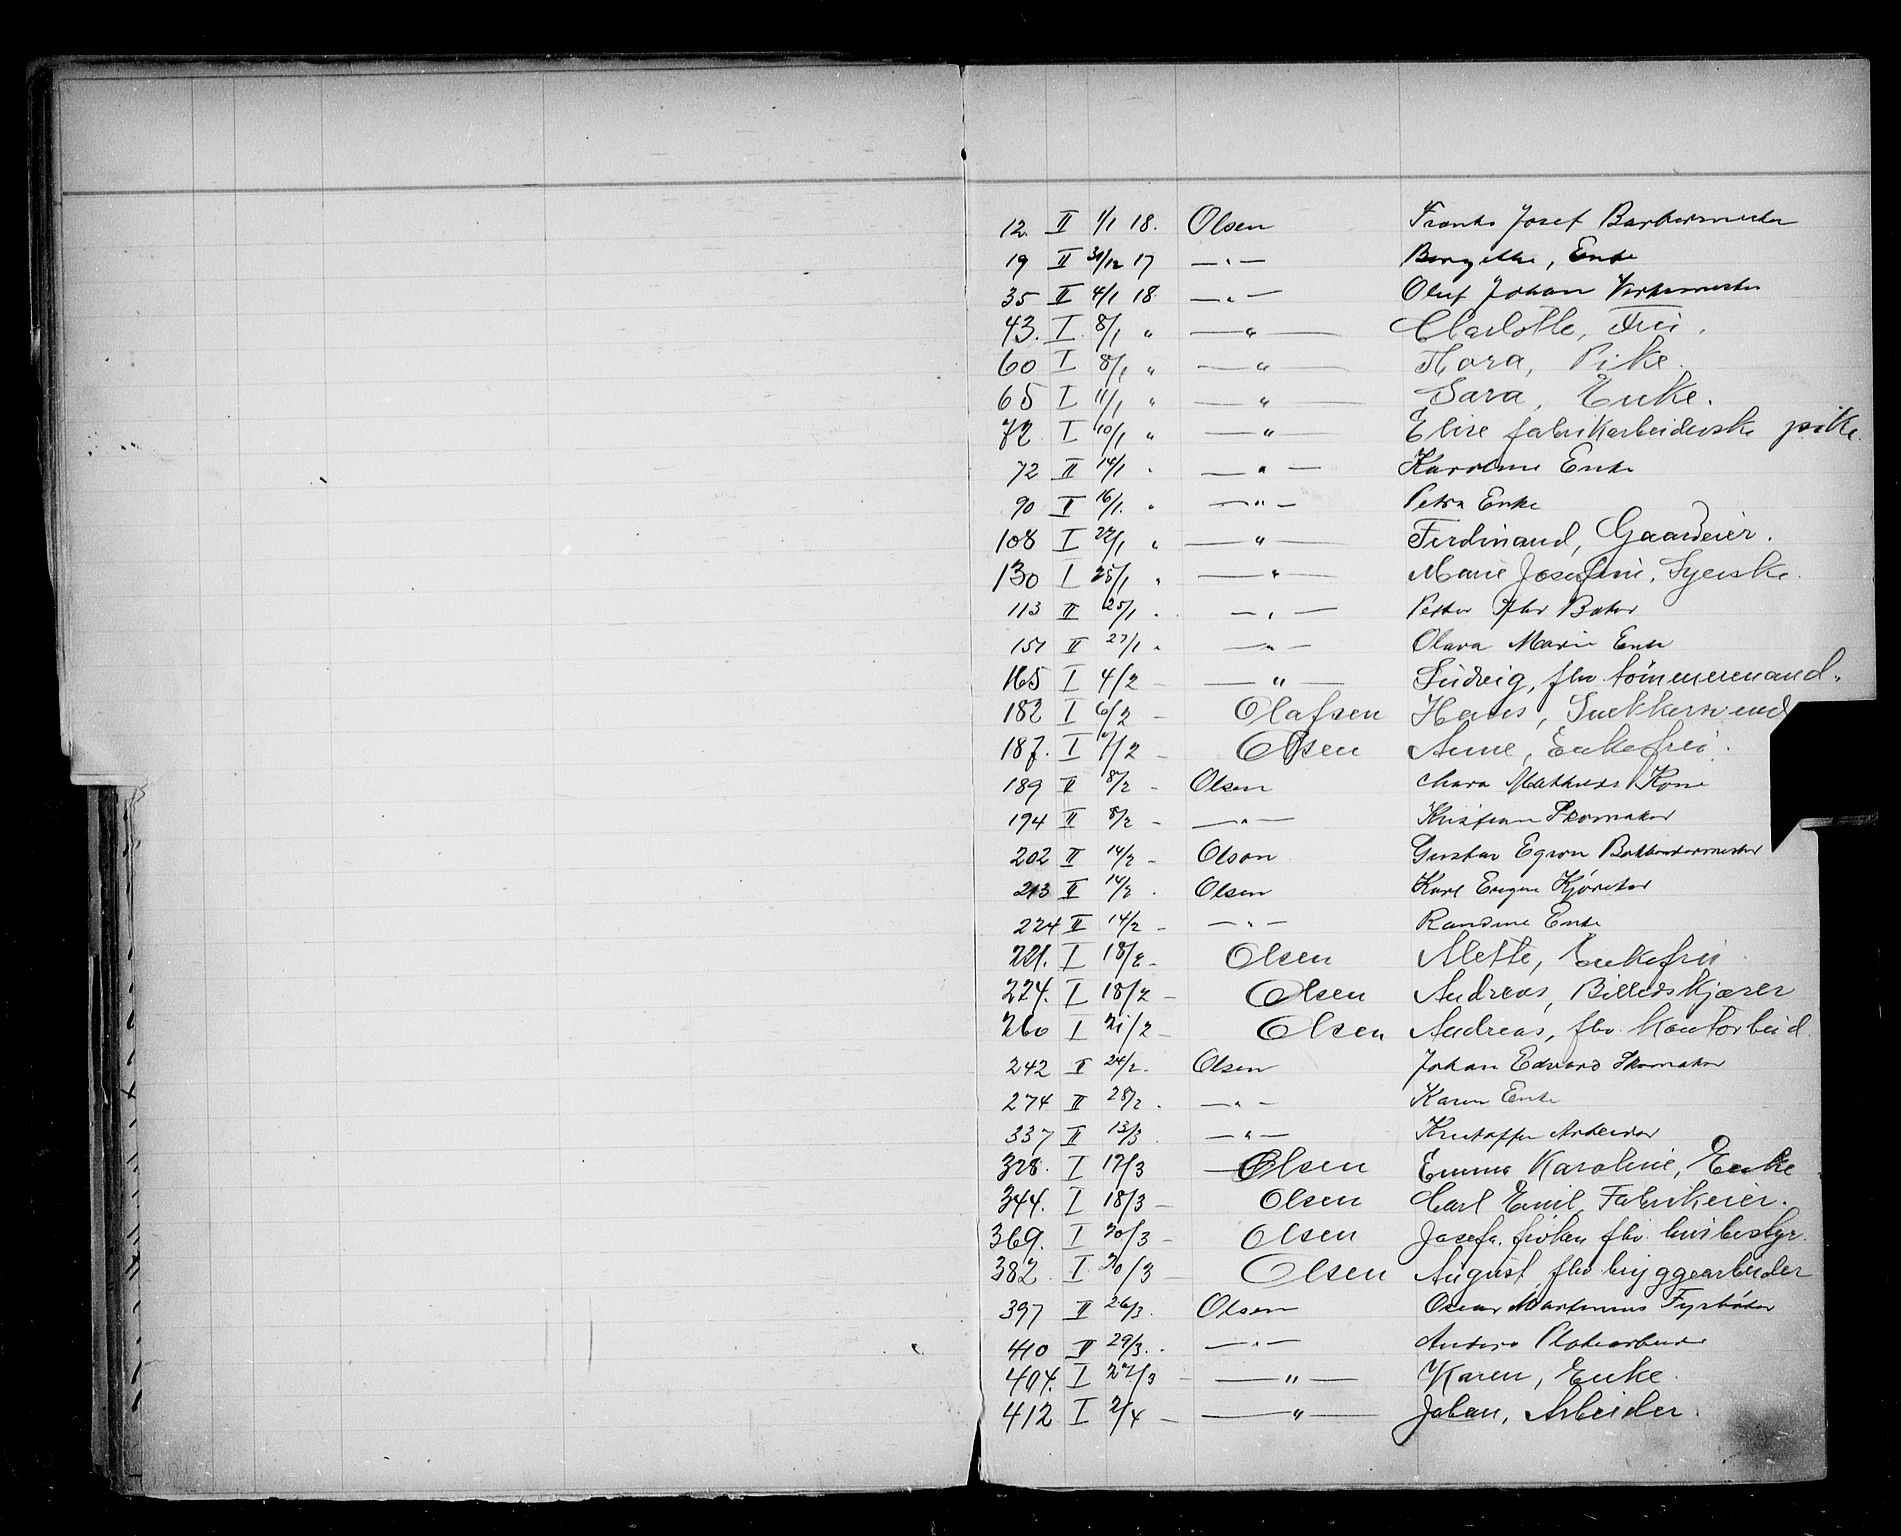 12. II 1/1 18. Olsen Frants Josef Barbermester
19 II 31/12 17 —"— Borgethe, Enke
35 II 4/1 18. —"— Oluf Johan Verksmester
43. I. 8/1 " —"— Charlotte, Frü.
60 I 8/1 " —"— Thora, Pike.
65 I 11/1 " —"— Sara, Enke.
72 I 10/1 " —"— Elise fabrikarbeiderske pike.
72 II 14/1 " —"— Karoline Enke
90 II 16/1. " —"— Petra Enke
108 I 22/1 " —"— Ferdinand, Gaardeier.
130 I 25/1 " —"— Marie Josefine, Syerske.
113 II 25/1 " —"— Petter flv Baker
151 II 27/1 " —"— Olava Marie Enke
165 I 4/2 — —"— Ludvig, flv. tømmermand.
182 I 6/2 — Olafsen Hans, Snekkersvend
187. I 7/2 — Olsen Anne, Enkefrü.
189 II 8/2 — Olsen Mara Mathilde Kone
194 II 8/2 — —"— Kristian Skomaker
202 II 14/2 — Olson Gustav Egron Bokbindermester
213 II 14/2 . Olsen Karl Eugen Kjøretør
224 II 14/2 — —"— Randine Enke
221. I 18/2 — Olsen Alette, Enkefrü
224. I 18/2 — Olsen Andreas, Billedskjærer
260 I 21/2 — Olsen Andreas, flv. kontorbud.
242 II 24/2. Olsen Johan Edvard Skomaker
274 II 28/2 . —"— Karen Enke
337 II 13/3 —"— Kristoffer Arbeider
328. I 17/3 Olsen Emma Karoline, Enke
344. I 18/3 — Olsen Carl Emil, Fabrikeier.
369. I 20/3 — Olsen Josefa. frøken flv. husbestyr.
382. I 20/3 — Olsen August flv bryggearbeider
397 II 26/3. Olsen Oscar Martinius Fyrbøter
410 II 29/3. . —"— Anders Platearbeider
404. I 27/3 — —"— Karen, Enke.
412 I 2/4 — —"— Johan, Arbeider.